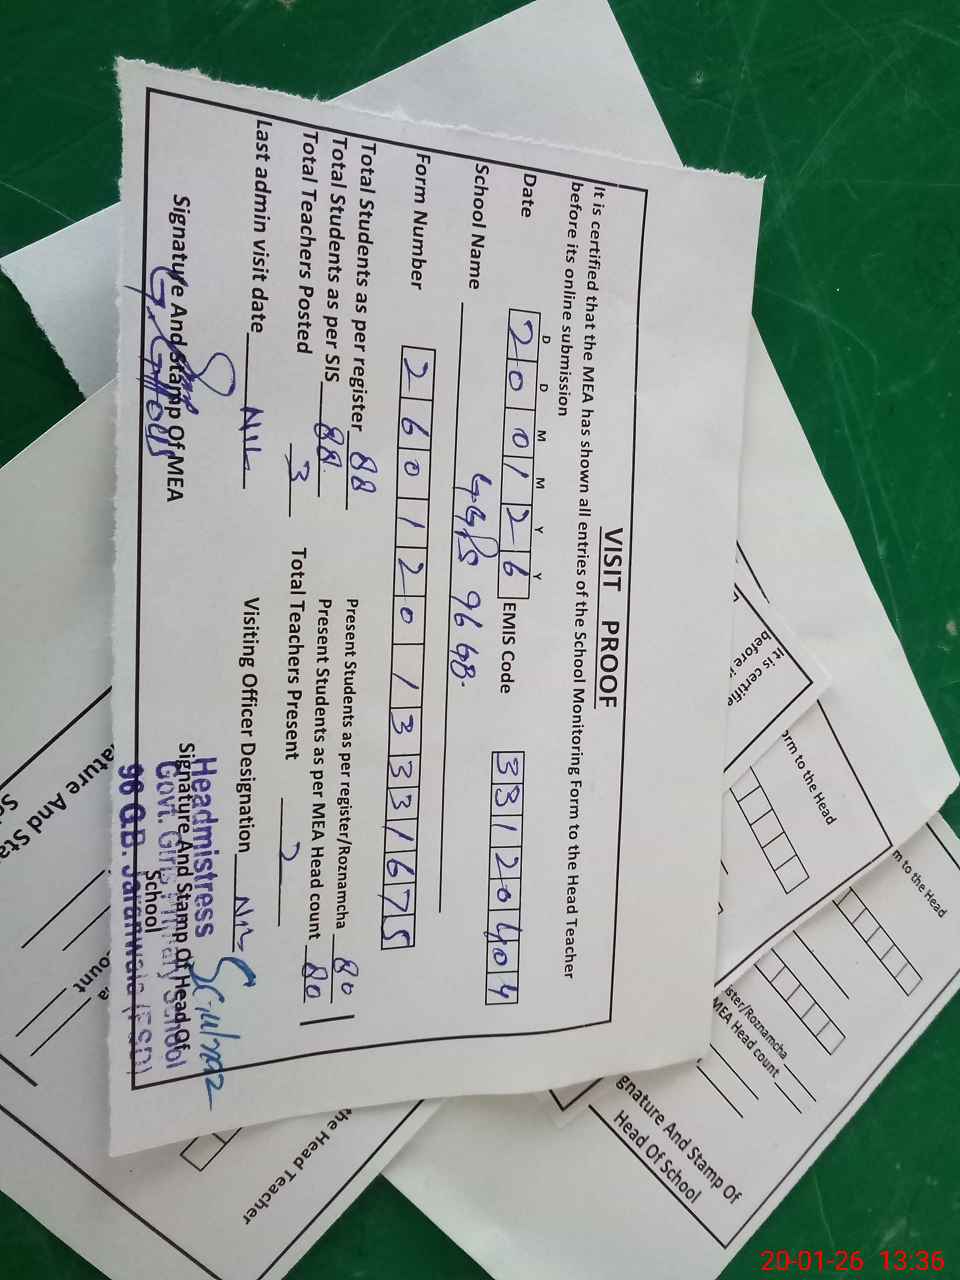 VISIT PROOF
It is certified that the MEA has shown all entries of the School Monitoring Form to the Head Teacher
before its online submission
D D M M Y Y
Date 20 01 26 EMIS Code 33120404
School Name GGPS 96 GB.
Form Number 26012013331675
Total Students as per register 88 Present Students as per register/Roznamcha 80
Total Students as per SIS 88. Present Students as per MEA Head count 80
Total Teachers Posted 3 Total Teachers Present 2
Last admin visit date NIL Visiting Officer Designation NIL
Signature And Stamp Of MEA Signature And Stamp Of Head Of
School
Headmistress
Govt. Girls Primary School
96 G.B. Jaranwala (FSD)
It is certifie
before i
orm to the Head
m to the Head
ister/Roznamcha
MEA Head count
gnature And Stamp Of
Head Of School
the Head Teacher
ature And Sta
Sc
ount
20-01-26 13:36